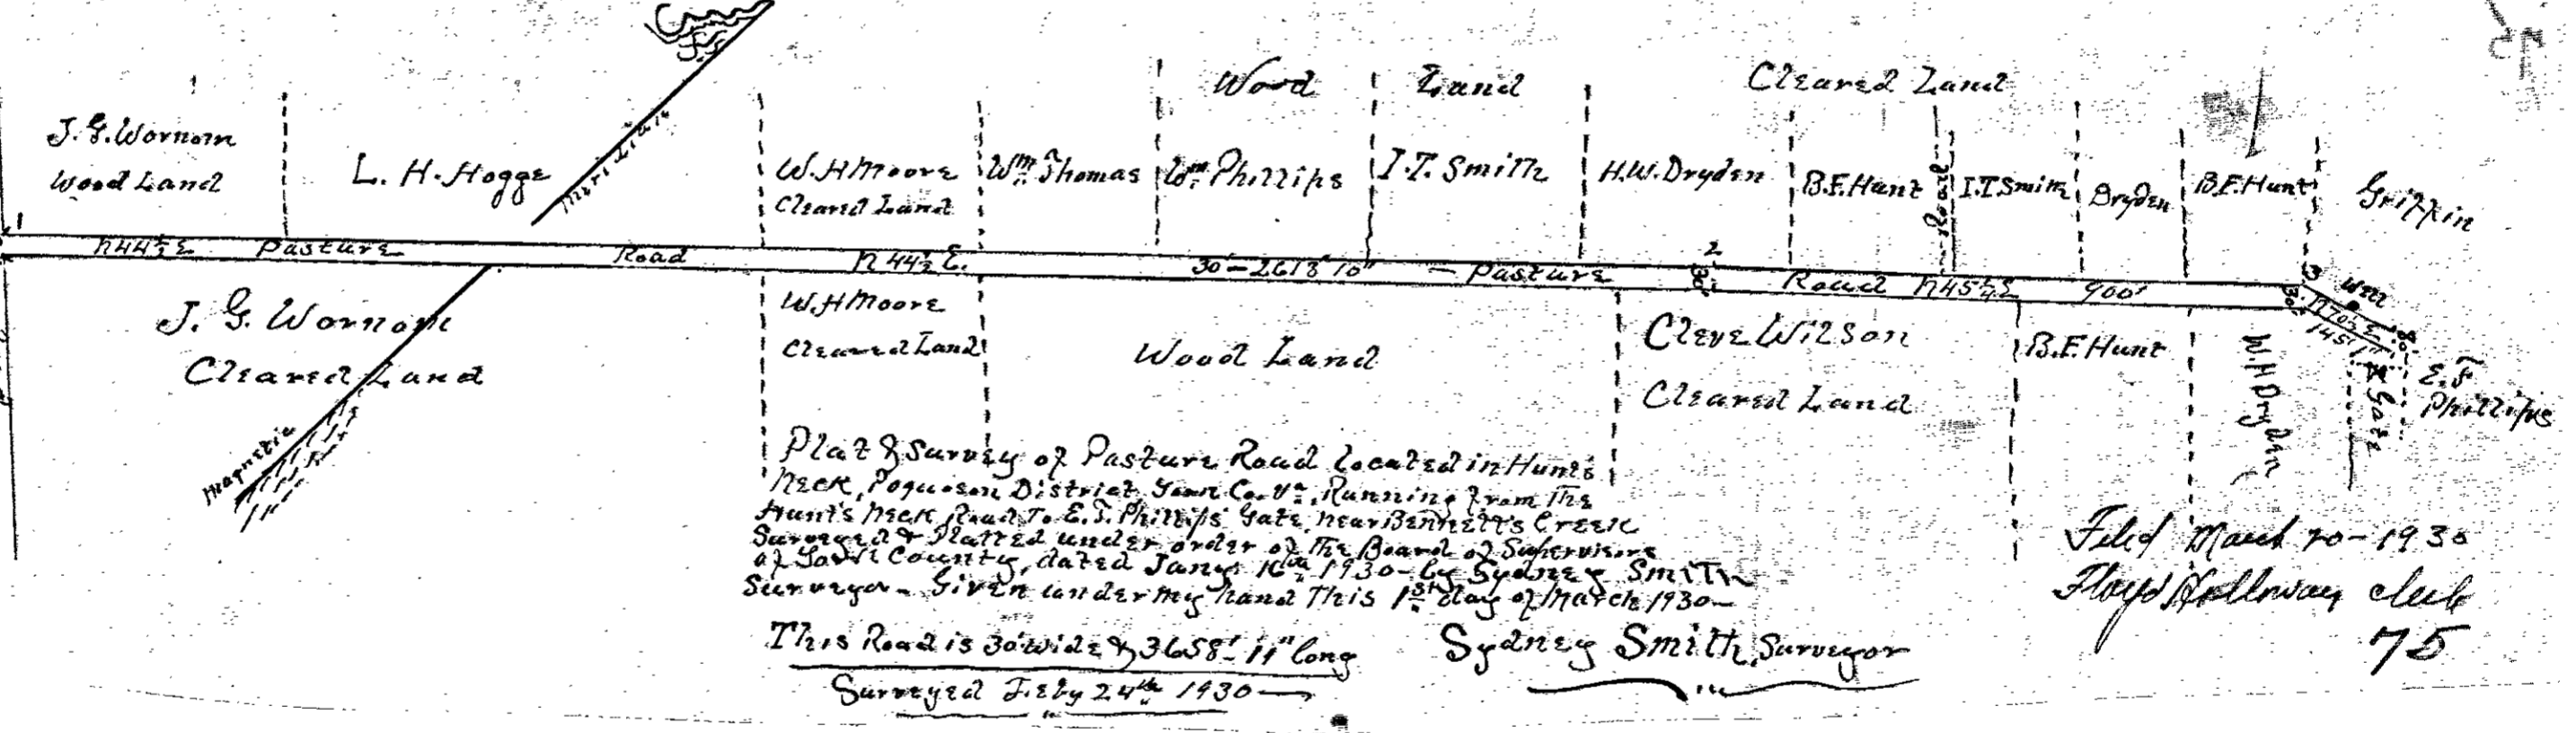 Wood Land
Cleared Land
J. G. Wornom
Wood Land
L. H. Hogge
Meridian
W. H Moore
Cleared Land
Wm Thomas
Wm Phillips
I. T. Smith
H. W. Dryden
B. F. Hunt
Road
I. T Smith
Dryden
B. F. Hunt
Griffin
1
N 44½ E Pasture Road N 44½ E. 30' - 2613' 10" - Pasture
2
30'
Road N 45¼ E 900'
3
30'
N 70½ E
145' 1"
Well
30'
J. G. Wornom
Cleared Land
Magnetic
W. H Moore
Cleared Land
Wood Land
Cleve Wilson
Cleared Land
B. F. Hunt
W. H Dryden
Gate
E. F
Phillips
Plat & Survey of Pasture Road located in Hunts
Neck, Poquoson District, York Co. Va. Running from The
Hunt's Neck Road To E. F. Phillips' Gate, near Bennett's Creek
Surveyed & Platted under order of The Board of Supervisors
of York County, dated Jany 16th 1930 - by Sydney Smith
Surveyor - Given under my hand This 1st day of March 1930 -
This Road is 30' wide & 3658' - 11" long
Surveyed Feby 24th 1930
Sydney Smith, Surveyor
Filed March 20 - 1930
Floyd Holloway clerk
75